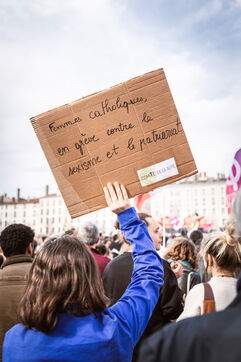 Femmes catholiques,
en grève contre le
sexisme et le patriarcat
COMITÉ DE LA JUPE